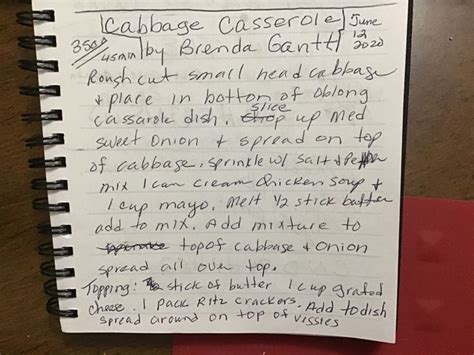 Cabbage Casserole June
350° 45min by Brenda Gantt 12 2020
Rough cut small head cabbage
& place in bottom of oblong
cassarole dish. slice up med
sweet onion & spread on top
of cabbage. sprinkle w/ salt & Pepper
mix 1 can cream chicken soup &
1 cup mayo. melt 1/2 stick butter
add to mix. Add mixture to
top of cabbage & onion
spread all over top.
Topping: stick of butter 1 cup grated
cheese. 1 pack Ritz crackers. Add to dish
spread around on top of vissies